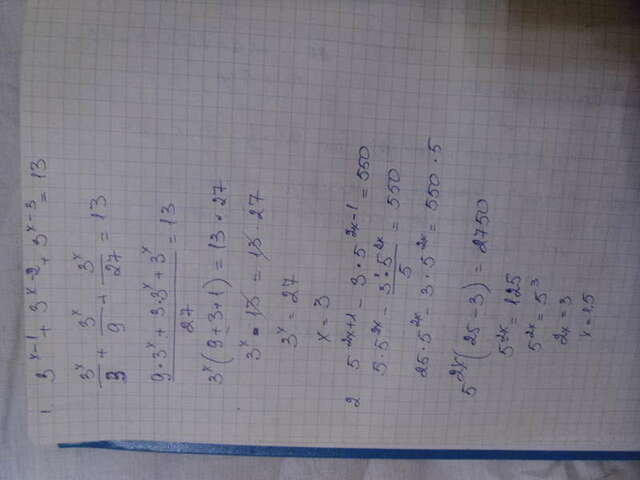 1. 3^(x-1) + 3^(x-2) + 3^(x-3) = 13
3^x/3 + 3^x/9 + 3^x/27 = 13
(9·3^x + 3·3^x + 3^x)/27 = 13
3^x (9+3+1) = 13 · 27
3^x · 13 = 13 · 27
3^x = 27
x = 3
2 5^(2x+1) - 3·5^(2x-1) = 550
5·5^(2x) - (3·5^(2x))/5 = 550
25·5^(2x) - 3·5^(2x) = 550·5
5^(2x) (25-3) = 2750
5^(2x) = 125
5^(2x) = 5^3
2x = 3
x = 1.5